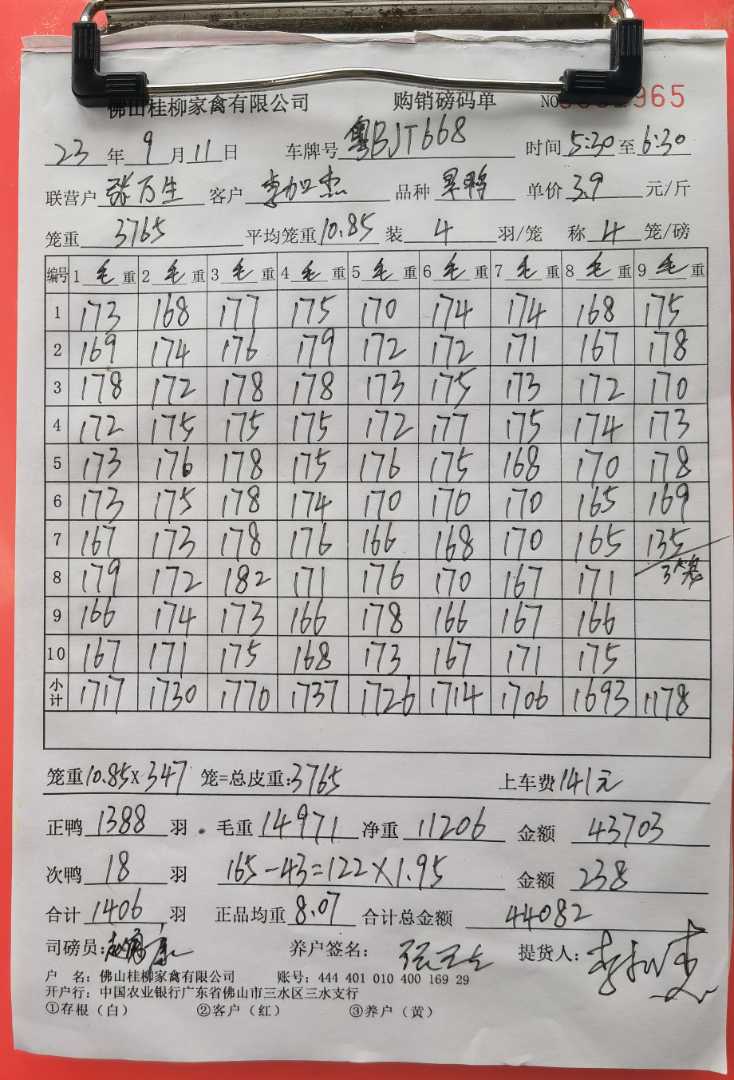 佛山桂柳家禽有限公司 购销磅码单 NO 965
23 年 9 月 11 日 车牌号 粤BJT668 时间 5:30 至 6:30
联营户 张万生 客户 李加杰 品种 旱鸭 单价 3.9 元/斤
笼重 3765 平均笼重 10.85 装 4 羽/笼 称 4 笼/磅
编号 1 毛 重 2 毛 重 3 毛 重 4 毛 重 5 毛 重 6 毛 重 7 毛 重 8 毛 重 9 毛 重
1 173 168 177 175 170 174 174 168 175
2 169 174 176 179 172 172 171 167 178
3 178 172 178 178 173 175 173 172 170
4 172 175 175 175 172 177 175 174 173
5 173 176 178 175 176 175 168 170 178
6 173 175 178 174 170 170 170 165 169
7 167 173 178 176 166 168 170 165 135
8 179 172 182 171 176 170 167 171 3笼
9 166 174 173 166 178 166 167 166
10 167 171 175 168 173 167 171 175
小计 1717 1730 1770 1737 1726 1714 1706 1693 1178
笼重 10.85 X 347 笼=总皮重: 3765 上车费 141元
正鸭 1388 羽 毛重 14971 净重 11206 金额 43703
次鸭 18 羽 165-43=122X1.95 金额 238
合计 1406 羽 正品均重 8.07 合计总金额 44082
司磅员: 养户签名: 提货人: 李加杰
户 名: 佛山桂柳家禽有限公司 账号: 444 401 010 400 169 29
开户行: 中国农业银行广东省佛山市三水区三水支行
①存根（白） ②客户（红） ③养户（黄）